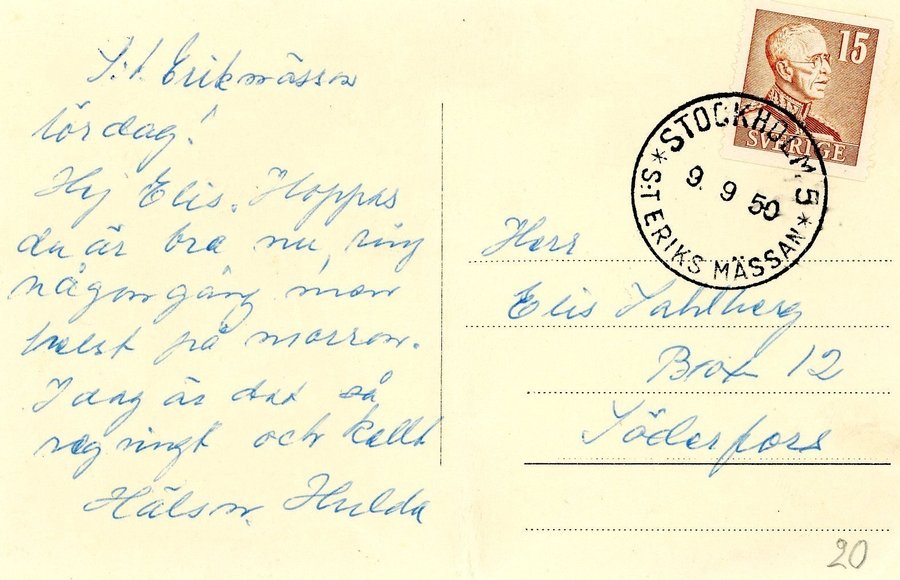 S:t Erikmässan
lördag!
Hej Elis. Hoppas
du är bra nu, ring
någon gång men
helst på morron.
I dag är det så
regnigt och kallt
Hälsn. Hulda
15
SVERIGE
STOCKHOLM 5
9. 9 50
* S:T ERIKS MÄSSAN *
Herr
Elis Sahlberg
Box 12
Söderfors
20